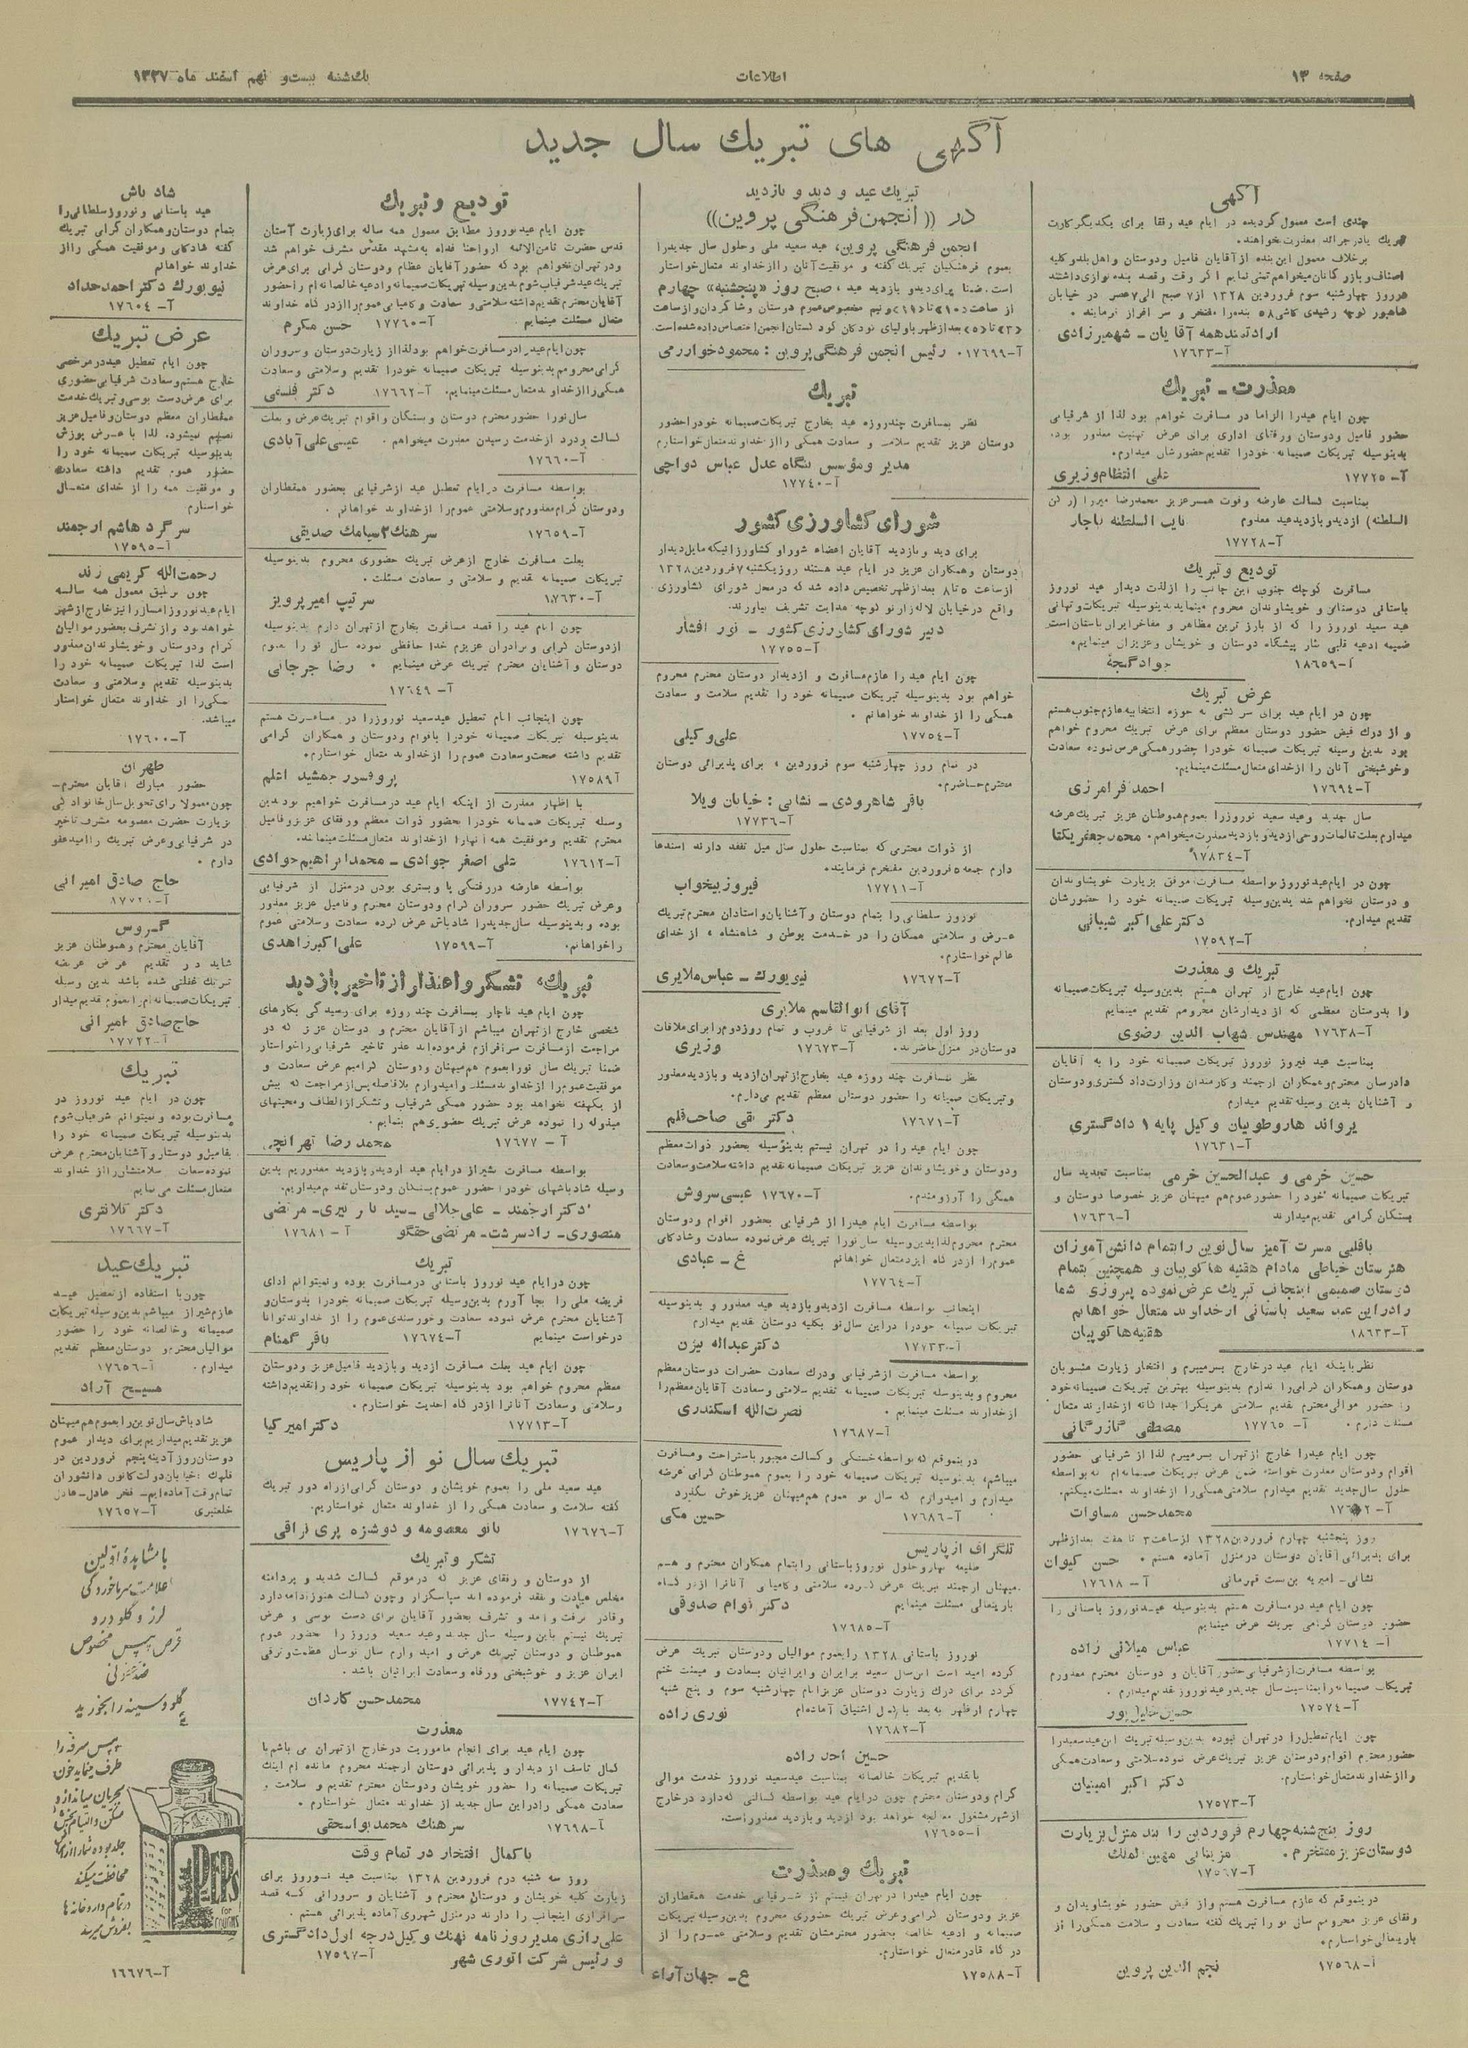 صفحه ۱۳
اطلاعات
یك‌شنبه بیست‌و نهم اسفند ماه ۱۳۲۷
آگهی های تبریك سال جدید
آگهی
چندی است معمول گردیده در ایام عید رفقا برای یکدیگر کارت
تبریك یا در جرائد معذرت بخواهند.
برخلاف معمول این بنده از آقایان فامیل ودوستان واهل بلد و کلیه
اصناف و بازرگانان میخواهم تمنی نمایم اگر وقت وقصد بنده نوازی داشتند
هر روز چهارشنبه سوم فروردین ۱۳۲۸ از ۷ صبح الی ۷ عصر در خیابان
شاهپور کوچه رشیدی کاشی ۵۸ بنده را مفتخر و سر افراز نمایند.
ارادتمند همه آقایان ـ شهمیرزادی
آ-۱۷۶۳۳
معذرت ـ تبریك
چون ایام عید را الزاما در مسافرت خواهم بود لذا از شرفیابی
حضور فامیل ودوستان ورفقای اداری برای عرض تهنیت معذور بود.
بدینوسیله تبریکات صمیمانه خودرا تقدیم حضورشان میدارم.
آ-۱۷۷۲۵ علی انتظام وزیری
بمناسبت کسالت عارضه وفوت همسر عزیز محمدرضا میرزا (رکن
السلطنه) ازدید و بازدید عید معذورم نایب السلطنه باچار
آ-۱۷۷۲۸
تودیع و تبریك
مسافرت کوچك جنوب این جانب را از لذت دیدار عید نوروز
باستانی دوستانی و خویشاوندان محروم مینماید بدینوسیله تبریکات و تهانی
عید سعید نوروز را که از بارز ترین مظاهر و مفاخر ایران باستان است
ضمیمه ادعیه قلبی نثار پیشگاه دوستان و خویشان وعزیزان مینمایم.
آ-۱۸۶۵۹ جواد گنجه
عرض تبریك
چون در ایام عید برای سرکشی به حوزه انتخابیه عازم جنوب هستم
و از درك فیض حضور دوستان معظم برای عرض تبریك محروم خواهم
بود بدین وسیله تبریکات صمیمانه خودرا حضور همگی عرض نموده سعادت
وخوشبختی آنان را از خدای متعال مسئلت مینمایم.
آ-۱۷۶۹۴ احمد فرامرزی
سال جدید وعید سعید نوروز را بعموم هموطنان عزیز تبریك عرضه
میدارم بعلت تالمات روحی از دید و بازدید معذرت میخواهم. محمد جعفر یکتا
آ-۱۷۸۳۴
چون در ایام عید نوروز بواسطه مسافرت موفق بزیارت خویشاوندان
و دوستان نخواهم شد بدین وسیله تبریکات صمیمانه خود را حضورشان
تقدیم میدارم. دکتر علی اکبر شیبانی
آ-۱۷۵۹۲
تبریك و معذرت
چون ایام عید خارج از تهران هستم بدین وسیله تبریکات صمیمانه
را بدوستان معظمی که از دیدارشان محرومم تقدیم مینمایم
آ-۱۷۶۳۸ مهندس شهاب الدین رضوی
بمناسبت عید فیروز نوروز تبریکات صمیمانه خود را به آقایان
دادرسان محترم و همکاران ارجمند و کارمندان وزارت دادگستری و دوستان
و آشنایان بدین وسیله تقدیم میدارم
یرواند هاروطونیان وکیل پایه ۱ دادگستری
آ-۱۷۶۳۱
حسین خرمی و عبدالحسین خرمی بمناسبت تجدید سال
تبریکات صمیمانه خود را حضور عموم هم میهنان عزیز خصوصا دوستان و
بستگان گرامی تقدیم میدارند آ-۱۷۶۳۶
باقلبی مسرت آمیز سال نوین را بتمام دانش آموزان
هنرستان خیاطی مادام هقنیه هاکوبیان و همچنین بتمام
دوستان صمیمی اینجانب تبریك عرض نموده پیروزی شما
را در این عید سعید باستانی از خداوند متعال خواهانیم
آ-۱۸۶۳۳ هقنیه هاکوپیان
نظر باینکه ایام عید در خارج بسر میبرم و افتخار زیارت منسوبان
دوستان وهمکاران گرامی را ندارم بدینوسیله بهترین تبریکات صمیمانه خود
را حضور موالی محترم تقدیم سلامتی هریك را جدا گانه از خداوند متعال
مسئلت دارم. آ-۱۷۷۶۵ مصطفی گازرگانی
چون ایام عید را خارج از تهران بسر میبرم لذا از شرفیابی حضور
اقوام ودوستان معذرت خواسته ضمن عرض تبریکات صمیمانه‌ام که بواسطه
حلول سال جدید تقدیم میدارم سلامتی همگی را از خداوند مسئلت میکنم.
محمد حسن مساوات
روز پنجشنبه چهارم فروردین ۱۳۲۸ از ساعت ۳ تا هفت بعد از ظهر
برای پذیرائی آقایان دوستان در منزل آماده هستم. حسن کیوان
نشانی ـ امیریه بن بست قهرمانی آ-۱۷۶۱۸
چون ایام عید در مسافرت هستم بدینوسیله عید نوروز باستانی را
حضور دوستان گرامی تبریك عرض مینمایم
آ-۱۷۷۱۴ عباس میلانی زاده
بواسطه مسافرت از شرفیابی حضور آقایان و دوستان محترم معذورم
تبریکات صمیمانه را بمناسبت سال جدید و عید نوروز تقدیم میدارم.
آ-۱۷۵۷۴
چون ایام تعطیل را در تهران نبوده بدین وسیله تبریك این عید سعید را
حضور محترم اقوام ودوستان عزیز تبریك عرض نموده سلامتی وسعادت همگی
را از خداوند متعال خواستارم. دکتر اکبر امینیان
آ-۱۷۵۷۳
روز پنج‌شنبه چهارم فروردین را بند منزل بزیارت
دوستان عزیز مفتخرم.
آ-۱۷۵۶۷
در بنموقع که عازم مسافرت هستم و از فیض حضور خویشاوندان و
رفقای عزیز محرومم سال نو را تبریك گفته سعادت و سلامت همگی را از
باریتعالی خواستارم.
آ-۱۷۵۶۸ نجم الدین پروین
تبریك عید و دید و بازدید
در ((انجمن فرهنگی پروین))
انجمن فرهنگی پروین، عید سعید ملی و حلول سال جدید را
بعموم فرهنگیان تبریك گفته و موفقیت آنان را از خداوند متعال خواستار
است. ضمنا برای دید و بازدید عید، صبح روز «پنجشنبه» چهارم
از ساعت «۱۰» تا «۱۲» ونیم مخصوص عموم دوستان و شاگردان و از ساعت
«۳» تا «۵» بعد از ظهر باولیای نودکان کودکستان انجمن اختصاص داده شده است.
آ-۱۷۶۹۹ رئیس انجمن فرهنگی پروین: محمود خوارزمی
تبریك
نظر بمسافرت چند روزه عید بخارج تبریکات صمیمانه خود را حضور
دوستان عزیز تقدیم سلامت و سعادت همگی را از خداوند متعال خواستارم
مدیر و مؤسس بنگاه عدل عباس دواچی
آ-۱۷۷۴۰
شورای کشاورزی کشور
برای دید و بازدید آقایان اعضاء شورا و کشاورزانیکه مایل دیدار
دوستان و همکاران عزیز در ایام عید هستند روز یکشنبه ۷ فروردین ۱۳۲۸
از ساعت ۵ تا ۸ بعد از ظهر تخصیص داده شد که در محل شورای کشاورزی
واقع در خیابان لاله‌زار نو کوچه هدایت تشریف بیاورند.
دبیر شورای کشاورزی کشور ـ نور افشار
آ-۱۷۷۵۵
چون ایام عید را عازم مسافرت و از دیدار دوستان محترم محروم
خواهم بود بدینوسیله تبریکات صمیمانه خود را تقدیم سلامت و سعادت
همگی را از خداوند خواهانم.
آ-۱۷۷۵۴ علی وکیلی
در تمام روز چهارشنبه سوم فروردین، برای پذیرائی دوستان
محترم حاضرم.
باقر شاهرودی ـ نشانی: خیابان ویلا
آ-۱۷۷۳۶
از ذوات محترمی که بمناسبت حلول سال میل تفقد دارند استدعا
دارم جمعه ۵ فروردین مفتخرم فرمایند.
آ-۱۷۷۱۱ فیروز بیخواب
نوروز سلطانی را بتمام دوستان و آشنایان و استادان محترم تبریك
عرض و سلامتی همگان را در خدمت بوطن و شاهنشاه، از خدای
عالم خواستارم.
آ-۱۷۶۷۲ نیویورك ـ عباس ملایری
آقای ابوالقاسم ملایری
روز اول بعد از شرفیابی تا غروب و تمام روز دوم را برای ملاقات
دوستان در منزل حاضرند. آ-۱۷۶۷۳ وزیری
نظر بمسافرت چند روزه عید بخارج از تهران از دید و بازدید معذور
و تبریکات صمیمانه را حضور دوستان معظم تقدیم می‌دارم.
آ-۱۷۶۷۱ دکتر نقی صاحب قلم
چون ایام عید را در تهران نیستم بدینوسیله بحضور ذوات معظم
ودوستان و خویشاوندان عزیز تبریکات صمیمانه تقدیم داشته سلامت و سعادت
همگی را آرزومندم. آ-۱۷۶۷۰ عیسی سروش
بواسطه مسافرت ایام عید را از شرفیابی بحضور اقوام و دوستان
محترم محروم لذا بدین وسیله سال نو را تبریك عرض نموده سعادت و شادکامی
عموم را از درگاه ایزد متعال خواهانم غ ـ عبادی
آ-۱۷۷۶۴
اینجانب بواسطه مسافرت از دید و بازدید عید معذور و بدینوسیله
تبریکات صمیمانه خود را در این سال نو بکلیه دوستان تقدیم میدارم
آ-۱۷۷۳۳ دکتر عبداله بیژن
بواسطه مسافرت از شرفیابی ودرك سعادت حضرات دوستان معظم
محروم و بدینوسیله تبریکات صمیمانه تقدیم سلامتی وسعادت آقایان معظم را
از خداوند مسئلت مینمایم. نصرت‌الله اسکندری
آ-۱۷۶۸۷
در بنموقع که بواسطه خستگی و کسالت مجبور باستراحت و مسافرت
میباشم، بدینوسیله تبریکات صمیمانه خود را بعموم هموطنان گرامی عرضه
میدارم و امیدوارم که سال نو بعموم هم میهنان عزیز خوش بگذرد
آ-۱۷۶۸۶ حسین مکی
تلگراف از پاریس
طلیعه بهار و حلول نوروز باستانی را بتمام همکاران محترم و هم
میهنان ارجمند تبریك عرض کرده سلامتی و کامیابی آنانرا از درگاه
باریتعالی مسئلت مینمایم دکتر قوام صدوقی
آ-۱۷۶۸۵
نوروز باستانی ۱۳۲۸ را بعموم موالیان و دوستان تبریك عرض
کرده امید است این سال سعید بر ایران و ایرانیان بسعادت و میمنت ختم
گردد برای درك زیارت دوستان عزیز ایام چهارشنبه سوم و پنج شنبه
چهارم از ظهر به بعد با کمال اشتیاق آماده‌ام نوری زاده
آ-۱۷۶۸۲
حسین احمد زاده
با تقدیم تبریکات خالصانه بمناسبت عید سعید نوروز خدمت موالی
گرام ودوستان محترم چون در ایام عید بواسطه کسالتی که دارد در خارج
از شهر مشغول معالجه خواهد بود از دید و بازدید معذور است.
آ-۱۷۶۵۵
تبریك و معذرت
چون ایام عید را در تهران نیستم از شرفیابی خدمت همقطاران
عزیز و دوستان گرامی و عرض تبریك حضوری محروم بدین وسیله تبریکات
صمیمانه و ادعیه خالصانه بحضور محترمشان تقدیم وسلامتی عموم را از
درگاه قادر متعال خواستارم.
آ-۱۷۵۸۸ ع ـ جهان‌آراء
تودیع و تبریك
چون ایام عید نوروز مطابق معمول همه ساله برای زیارت آستان
قدس حضرت ثامن‌الائمه ارواحنا فداه به مشهد مقدس مشرف خواهم شد
و در تهران نخواهم بود که حضور آقایان عظام ودوستان گرامی برای عرض
تبریك عید شرفیاب شوم بدین وسیله تبریکات صمیمانه وادعیه خالصانه‌ام را حضور
آقایان محترم تقدیم داشته سلامتی و سعادت و کامیابی عموم را از درگاه خداوند
متعال مسئلت مینمایم آ-۱۷۷۶۰ حسن مکرم
چون ایام عید را در مسافرت خواهم بود لذا از زیارت دوستان و سروران
گرامی محرومم بدینوسیله تبریکات صمیمانه خود را تقدیم و سلامتی و سعادت
همگی را از خداوند متعال مسئلت مینمایم. آ-۱۷۶۶۲ دکتر فلسفی
سال نو را حضور محترم دوستان و بستگان و اقوام تبریك عرض و بعلت
کسالت و درد از خدمت رسیدن معذرت میخواهم. عیسی علی آبادی
آ-۱۷۶۶۰
بواسطه مسافرت در ایام تعطیل عید از شرفیابی بحضور همقطاران
ودوستان گرام معذورم وسلامتی عموم را از خداوند خواهانم.
آ-۱۷۶۵۹ سرهنك ۲ سیامك صدیقی
بعلت مسافرت خارج از عرض تبریك حضوری محروم بدینوسیله
تبریکات صمیمانه تقدیم و سلامتی و سعادت مسئلت.
آ-۱۷۶۳۰ سرتیپ امیر پرویز
چون ایام عید را قصد مسافرت بخارج از تهران دارم بدینوسیله
از دوستان گرامی و برادران عزیزم خدا حافظی نموده سال نو را بعموم
دوستان و آشنایان محترم تبریك عرض مینمایم. رضا جرجانی
آ-۱۷۶۴۹
چون اینجانب ایام تعطیل عید سعید نوروز را در مسافرت هستم
بدینوسیله تبریکات صمیمانه خود را باقوام و دوستان و همکاران گرامی
تقدیم داشته صحت و سعادت عموم را از خداوند متعال خواستارم.
آ-۱۷۵۸۹ پروفسور جمشید اعلم
با اظهار معذرت از اینکه ایام عید در مسافرت خواهیم بود بدین
وسیله تبریکات صمیمانه خود را بحضور ذوات معظم ورفقای عزیز و فامیل
محترم تقدیم و موفقیت همه آنها را از خداوند متعال مسئلت مینمائد.
آ-۱۷۶۱۲ علی اصغر جوادی ـ محمد ابراهیم جوادی
بواسطه عارضه دررفتگی پا و بستری بودن در منزل از شرفیابی
و عرض تبریك حضور سروران گرام و دوستان محترم و فامیل عزیز معذور
بوده و بدینوسیله سال جدید را شادباش عرض کرده سعادت و سلامتی عموم
را خواهانم. آ-۱۷۵۹۹ علی اکبر زاهدی
تبریك، تشکر و اعتذار از تاخیر بازدید
چون ایام عید ناچار بمسافرت چند روزه برای رسیدگی بکارهای
شخصی خارج از تهران میباشم از آقایان محترم و دوستان عزیز که در
مراجعت از مسافرت سرافرازم فرموده‌اند عذر تاخیر شرفیابی را خواستار
ضمنا تبریك سال نو را بعموم هم میهنان و دوستان گرامیم عرض سعادت و
موفقیت عموم را از خداوند مسئلت و امیدوارم بلافاصله پس از مراجعت که بیش
از یکهفته نخواهد بود حضور همگی شرفیاب و تشکر از الطاف و محبتهای
مبذوله را نموده عرض تبریك حضوری هم بنمایم.
آ-۱۷۶۷۷ محمد رضا تهرانچی
بواسطه مسافرت بشیراز در ایام عید از دید و بازدید معذوریم بدین
وسیله شادباشهای خود را حضور عموم بستگان و دوستان تقدیم میداریم.
دکتر ارجمند ـ علی جلالی ـ سید نادر نیری ـ مرتضی
منصوری ـ راد سرشت ـ مرتضی حقگو آ-۱۷۶۸۱
تبریك
چون در ایام عید نوروز باستانی در مسافرت بوده و نمیتوانم ادای
فریضه ملی را بجا آورم بدین‌وسیله تبریکات صمیمانه خود را بدوستان و
آشنایان محترم عرض نموده سعادت و خورسندی عموم را از خداوند توانا
درخواست مینمایم آ-۱۷۶۷۴ باقر گمنام
چون ایام عید بعلت مسافرت از دید و بازدید فامیل عزیز و دوستان
معظم محروم خواهم بود بدینوسیله تبریکات صمیمانه خود را تقدیم داشته
وسلامتی و سعادت آنانرا از درگاه احدیت خواستارم.
آ-۱۷۷۱۳ دکتر امیر کیا
تبریك سال نو از پاریس
عید سعید ملی را بعموم خویشان و دوستان گرامی از راه دور تبریك
گفته سلامت و سعادت همگی را از خداوند متعال خواستاریم.
آ-۱۷۶۷۶ بانو معصومه و دوشیزه پری نراقی
تشکر و تبریك
از دوستان و رفقای عزیز که در موقع کسالت شدید و پردامنه
مخلص عیادت و تفقد فرموده اند سپاسگزار و چون کسالت هنوز ادامه دارد
و قادر برفت و آمد و تشرف بحضور آقایان برای دست بوسی و عرض
تبریك نیستم باین وسیله سال جدید و عید سعید نوروز را حضور عموم
هموطنان و دوستان تبریك عرض و امید وارم سال نو سال عظمت و ترقی
ایران عزیز و خوشبختی و رفاه و سعادت ایرانیان باشد.
آ-۱۷۷۴۲ محمد حسن کاردان
معذرت
چون ایام عید برای انجام ماموریت در خارج از تهران می باشم با
کمال تاسف از دیدار و پذیرائی دوستان ارجمند محروم مانده ام اینك
تبریکات صمیمانه را حضور خویشان و دوستان محترم تقدیم و سلامت و
سعادت همگی را در این سال جدید از خداوند متعال خواستارم.
آ-۱۷۶۹۸ سرهنك محمد بواسحقی
با کمال افتخار در تمام وقت
روز سه شنبه دوم فروردین ۱۳۲۸ بمناسبت عید نوروز برای
زیارت کلیه خویشان و دوستان محترم و آشنایان و سرورانی که قصد
سرافرازی اینجانب را دارند در منزل شهرری آماده پذیرائی هستم.
علی رازی مدیر روزنامه نهنك و کیل درجه اول دادگستری
و رئیس شرکت انوری شهر آ-۱۷۵۹۷
شاد باش
عید باستانی و نوروز سلطانی را
بتمام دوستان و همکاران گرامی تبریك
گفته شادکامی و موفقیت همگی را از
خداوند خواهانم
نیویورك دکتر احمد حداد
آ-۱۷۶۰۴
عرض تبریك
چون ایام تعطیل عید در مرخصی
خارج هستم و سعادت شرفیابی حضوری
برای عرض دست بوسی و تبریك خدمت
همقطاران معظم دوستان و فامیل عزیز
نصیبم نمیشود. لذا با عرض پوزش
بدینوسیله تبریکات صمیمانه خود را
حضور عموم تقدیم داشته سعادت
و موفقیت همه را از خدای متعال
خواستارم
سرگرد هاشم ارجمند
آ-۱۷۵۹۵
رحمت‌الله کریمی زند
چون بر طبق معمول همه ساله
ایام عید نوروز امسال را نیز خارج از شهر
خواهد بود و از تشرف بحضور موالیان
کرام ودوستان و خویشاوندان معذور
است لذا تبریکات صمیمانه خود را
بدینوسیله تقدیم وسلامتی و سعادت
همگی را از خداوند متعال خواستار
میباشد.
آ-۱۷۶۰۰
طهران
حضور مبارك آقایان محترم ـ
چون معمولا برای تحویل سال خانوادگی
بزیارت حضرت معصومه مشرف تاخیر
در شرفیابی و عرض تبریك را امید عفو
دارم.
حاج صادق امیرانی
آ-۱۷۷۲۰
گروس
آقایان محترم و هموطنان عزیز
شاید در تقدیم عرض عریضه
تبریك غفلتی شده باشد بدین وسیله
تبریکات صمیمانه‌ام را بعموم تقدیم میدارم
حاج صادق امیرانی
آ-۱۷۷۲۲
تبریك
چون در ایام عید نوروز در
مسافرت بوده و نمیتوانم شرفیاب شوم
بدینوسیله تبریکات صمیمانه خود را
بفامیل و دوستان و آشنایان محترم عرض
نموده سعادت سلامتشان را از خداوند
متعال مسئلت می نمایم
دکتر کلانتری
آ-۱۷۶۶۷
تبریك عید
چون با استفاده از تعطیل عید
عازم شیراز میباشم بدین وسیله تبریکات
صمیمانه وخالصانه خود را حضور
موالیان محترم و دوستان معظم تقدیم
میدارم. آ-۱۷۶۵۶
مسیح آزاد
شادباش سال نوین را بعموم هم میهنان
عزیز تقدیم میداریم برای دیدار عموم
دوستان روز آدینه پنجم فروردین در
قلهك: خیابان دولت کانون دانشوران
تمام وقت آماده‌ایم ـ فخر عادل ـ عادل
خلعتبری آ-۱۷۶۵۷
بامشاهدهٔ اولین
علامت سرماخوردگی
لرز و گلو درد
قرص پپس مخصوص
ضدعفونی
گلو و سینه را بخورید
پپس سرفه را
برطرف مینماید خون
جریان میاندازد و
محافظت میکند
در تمام دواخانه ها
بفروش میرسد
PEPS
for
COUGHS
آ-۱۶۶۷۶